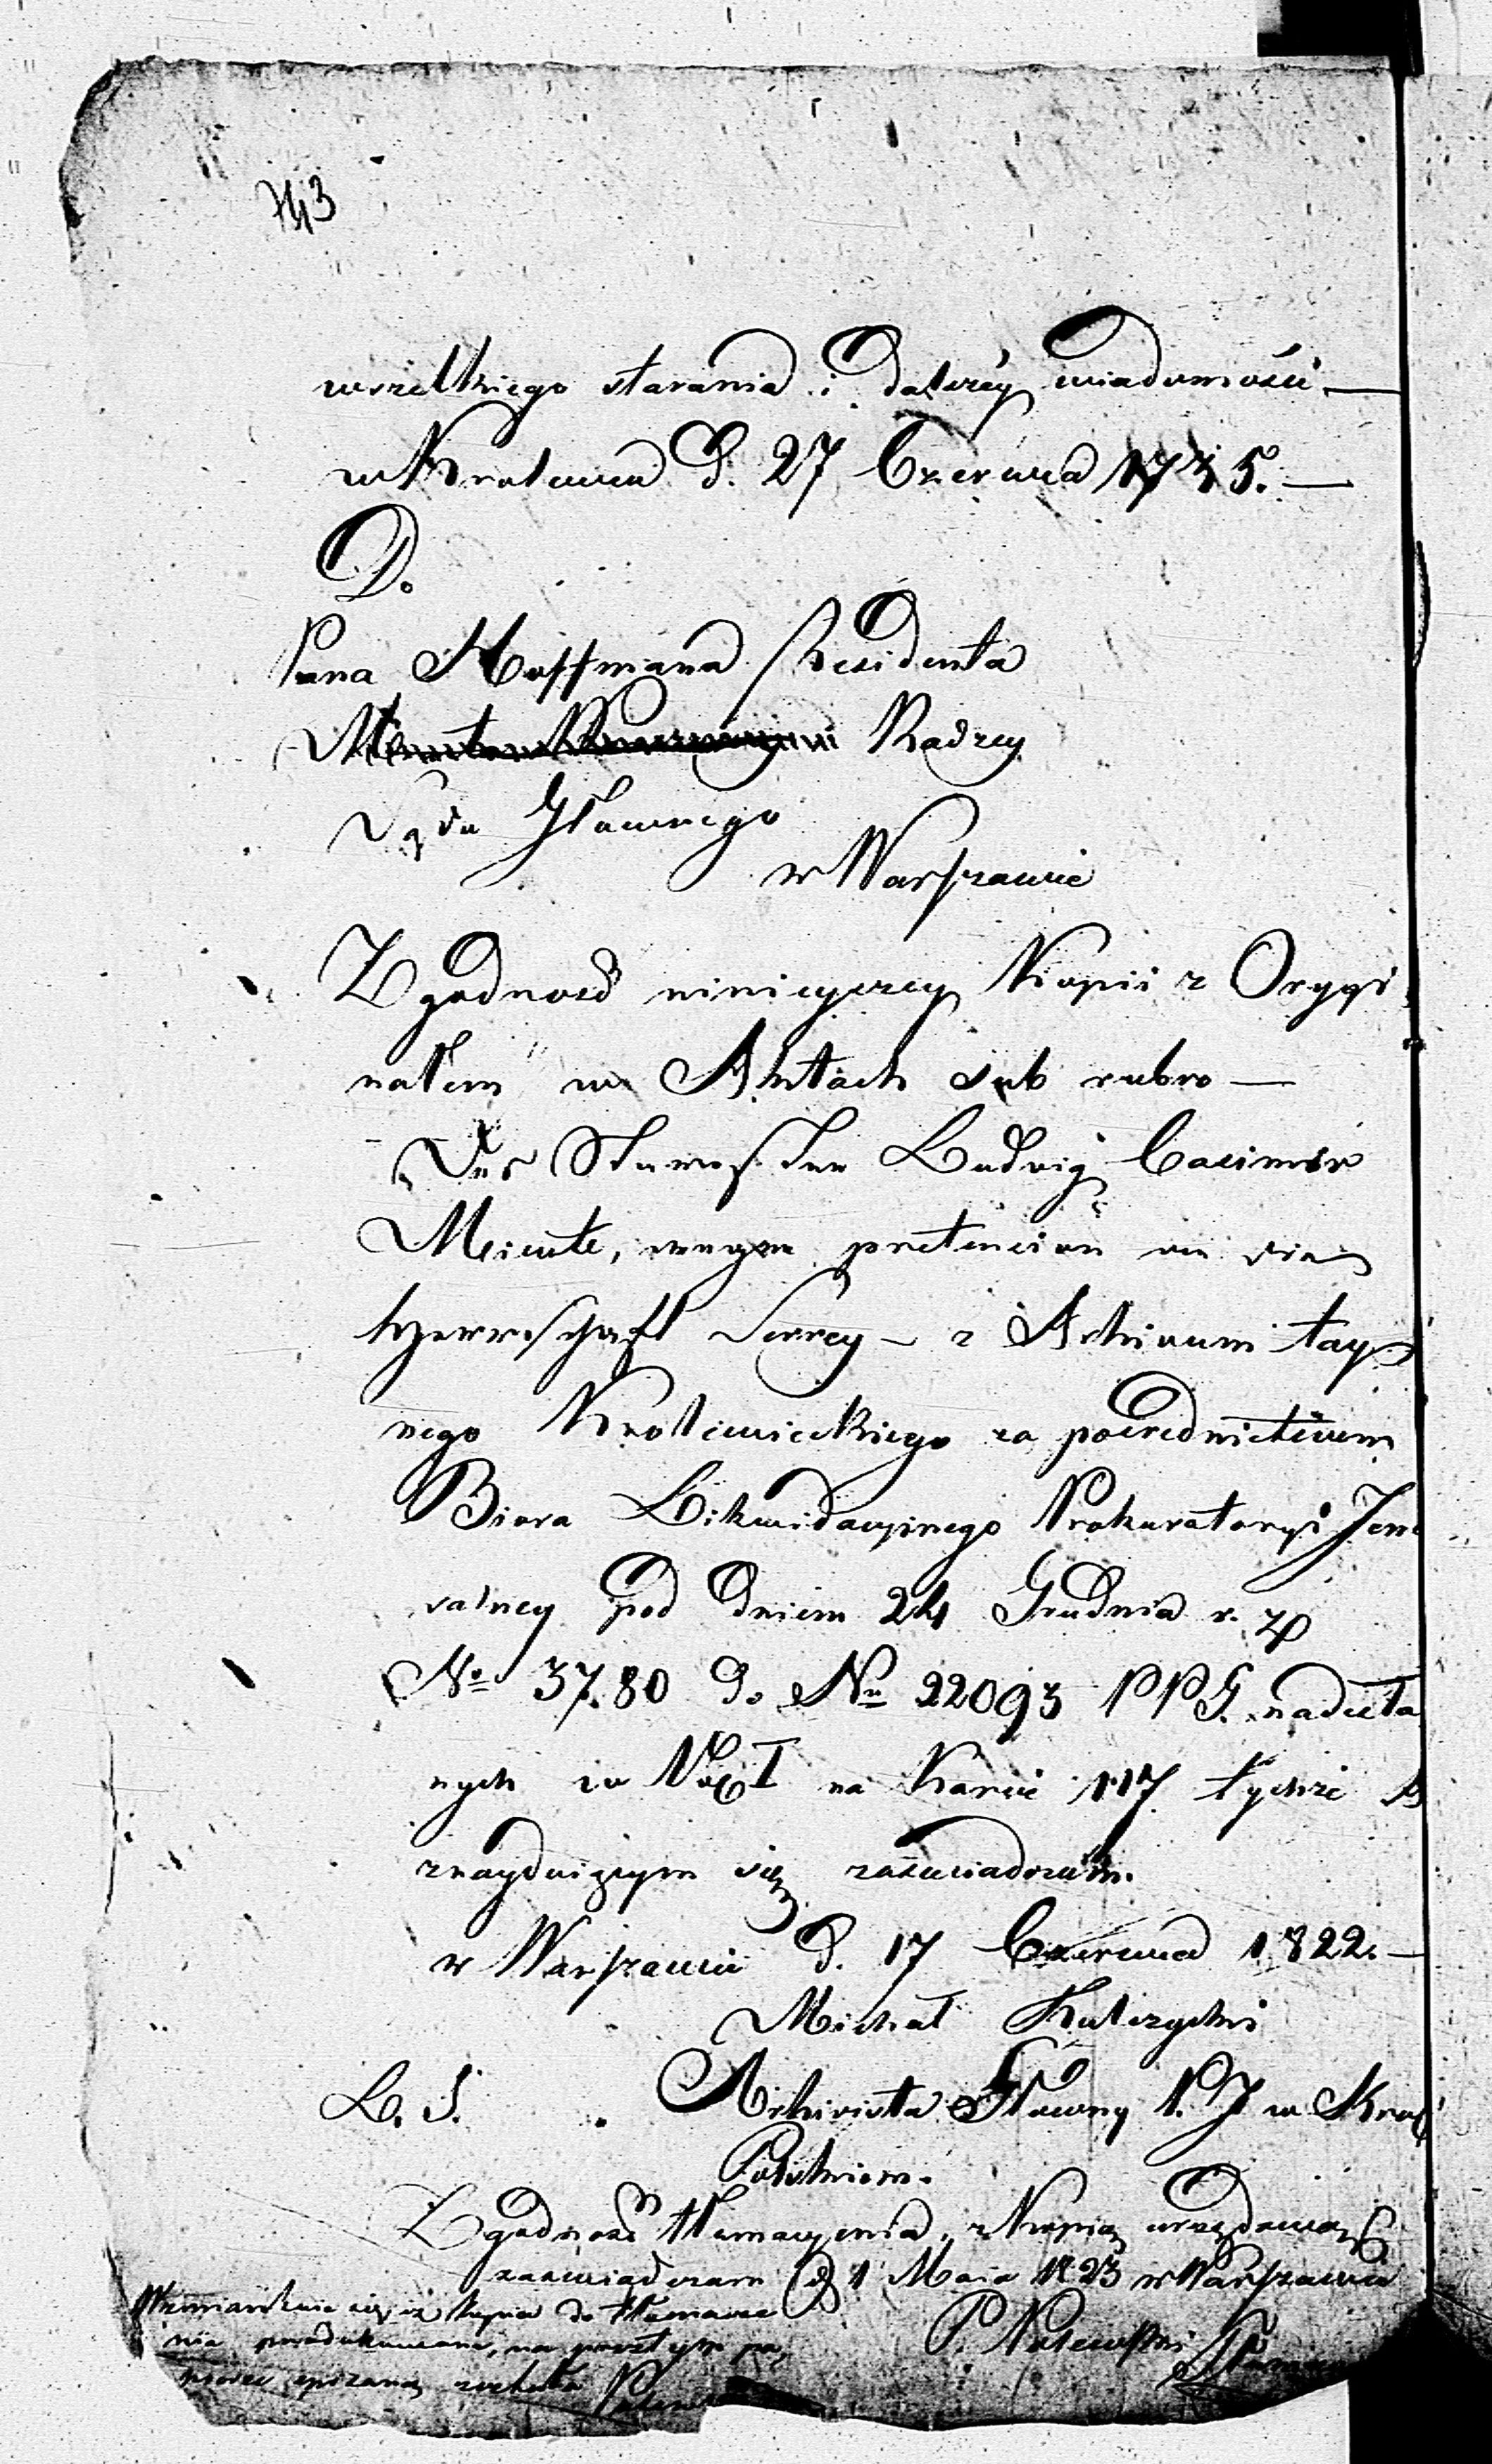 743
wszelkiego starania i dalszey wiadomości —
w Krolewcu d. 27 Czerwca 1745. —
D.
Pana Hoffmana Residenta
Radzcy
Sądu Głownego
w Warszawie
Zgodność ninieyszey Kopii z Orygi
nałem w Aktach sub rubro —
Des Starosten Ludwig Casimir
wegen pretension an die
Herrschaft Serrey — z Archivum tay
nego Krolewieckiego za pośrednictwem
Biora Likwidacyinego Prokuratoryi Jene
ralney pod dniem 24 Grudnia r. z.
No 3780 do No 22093 PPG. nadesła
nych w Vol I na Karcie 117 tychże A
znayduiącym się zaświadczam.
w Warszawie d. 17 Czerwca 1822. —
Michał Kulczycki
L. S. Archivista Głowny P. J. w Krol
Polskiem.
Zgodność tłomaczenia z Kopią urzędową
zaświadczam d 1 Maia 1823 w Warszawie
Wzmiankuie się iż Kopia do tłomacze
nia produkowana, na prostym pa,
pierze spisaną została